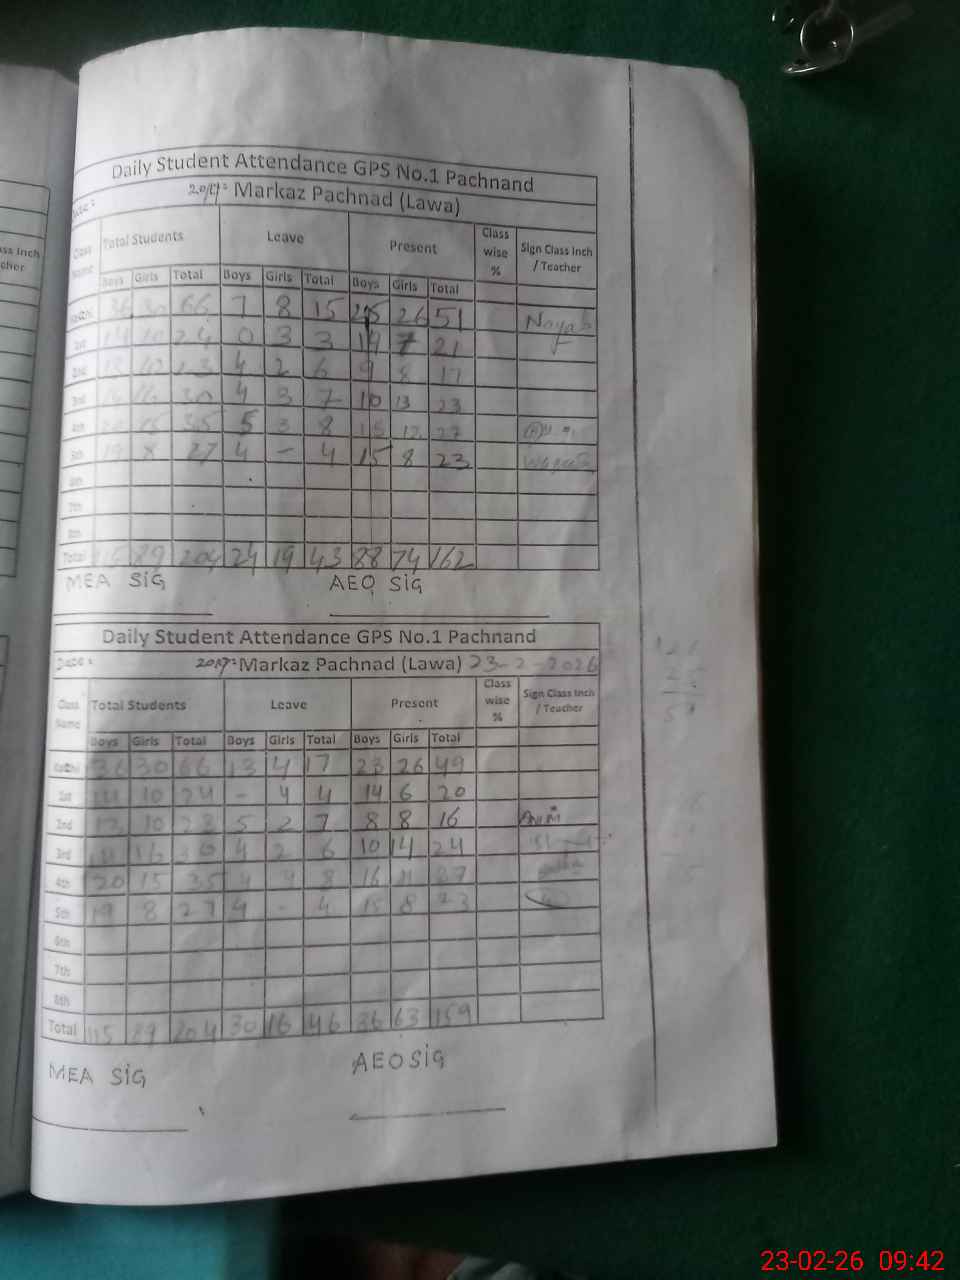 ass Inch
cher
Daily Student Attendance GPS No.1 Pachnand
Date: Markaz Pachnad (Lawa)
Class Name Total Students Leave Present Class wise % Sign Class Inch / Teacher
Boys Girls Total Boys Girls Total Boys Girls Total
36 30 66 7 8 15 25 26 51 Nayab
1st 14 10 24 0 3 3 7 21
2nd 4 2 6 9 8 17
3rd 16 30 4 3 7 10 13 23
4th 20 15 35 5 3 8 15 12 27
5th 19 8 27 4 - 4 15 8 23
6th
7th
8th
Total 115 89 204 24 19 43 88 74 162
MEA SiG AEO SiG
Daily Student Attendance GPS No.1 Pachnand
Date: Markaz Pachnad (Lawa) 23-2-2026
Class Name Total Students Leave Present Class wise % Sign Class Inch / Teacher
Boys Girls Total Boys Girls Total Boys Girls Total
36 30 66 13 4 17 23 26 49
1st 14 10 24 - 4 4 14 6 20
2nd 10 23 5 2 7 8 8 16
3rd 14 16 30 4 2 6 10 14 24
4th 20 15 35 4 4 8 16 11 27
5th 19 8 27 4 - 4 15 8 23
6th
7th
8th
Total 115 89 204 30 16 46 63 159
MEA SiG AEO SiG
23-02-26 09:42